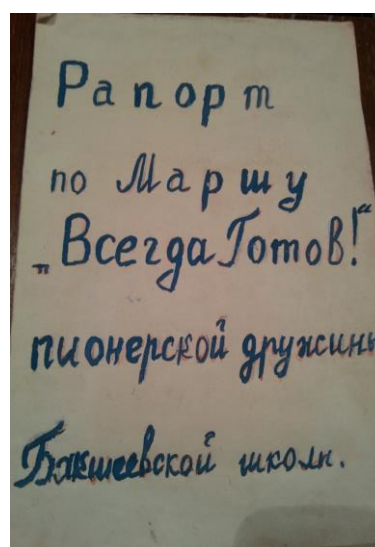 Рапорт
по Маршу
„Всегда Готов!“
пионерской дружины
Бакшеевской школы.